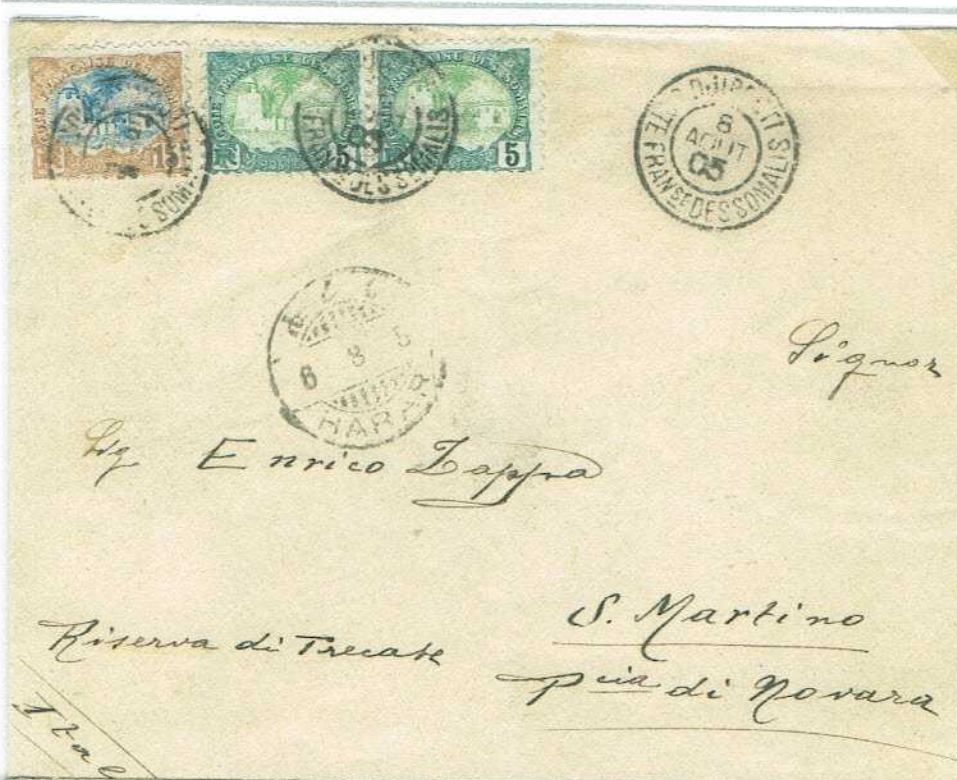 15
5
5
DJIBOUTI
8
AOUT
05
CTE FRANSE DES SOMALIS
8 5
6
HARAR
Signor
Sig Enrico Zappa
S. Martino
Riserva di Trecate
pcia di Novara
Ital